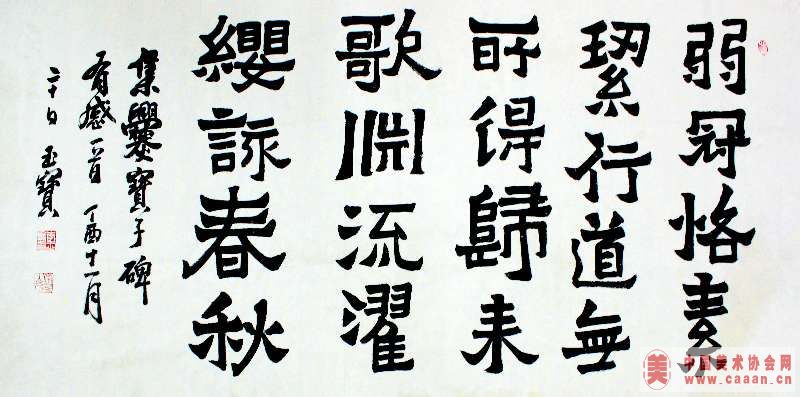 弱冠恪素
絜行道無
所得歸来
歌淵流濯
纓詠春秋
集爨寶子碑
有感一首 丁酉十一月
二十日 玉寶
美 中国美术协会网
www.caaan.cn